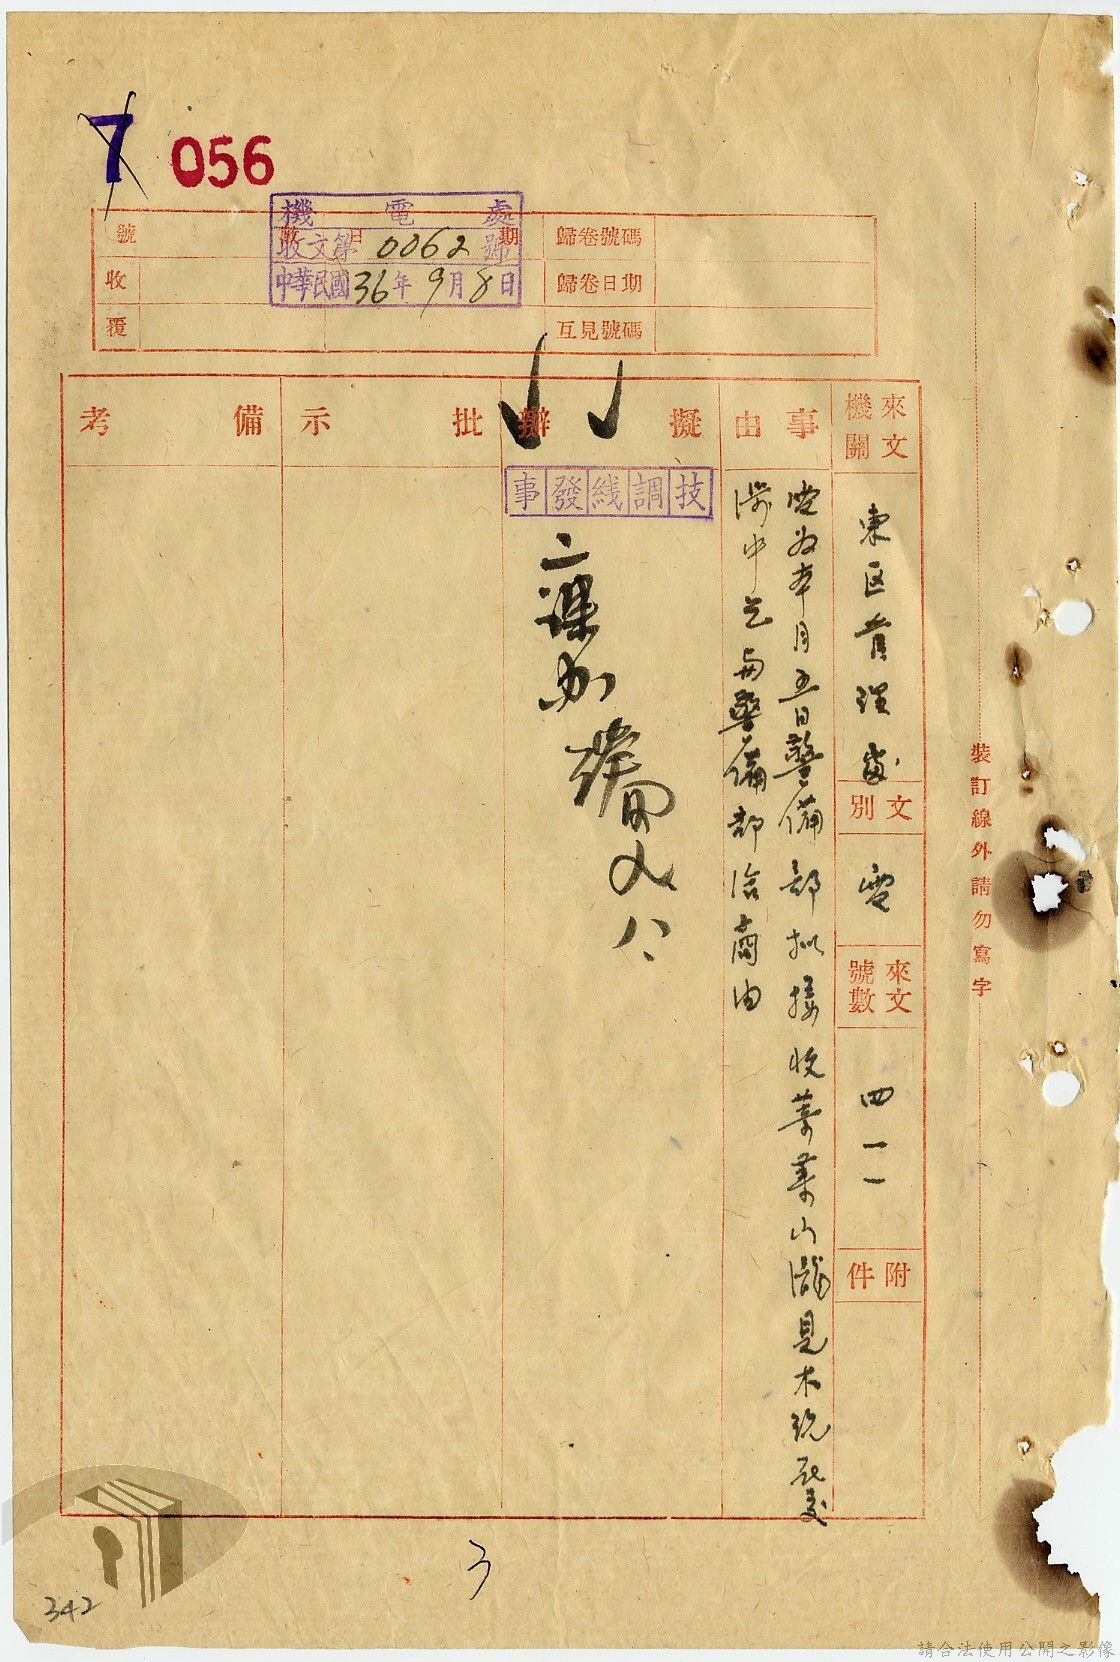 7 056
機電處
收文第0062號
中華民國36年9月8日
號 數 日期 歸卷號碼
收 歸卷日期
覆 互見號碼
來文機關 事由 擬辦 批示 備考
東区管理處
文別
電
來文號數
四一一
附件
本月五日警備部拟接收萬華山瀧見木
与警備部洽商由
技調线發事
二課办
八
裝訂線外請勿寫字
3
342
請合法使用公開之影像